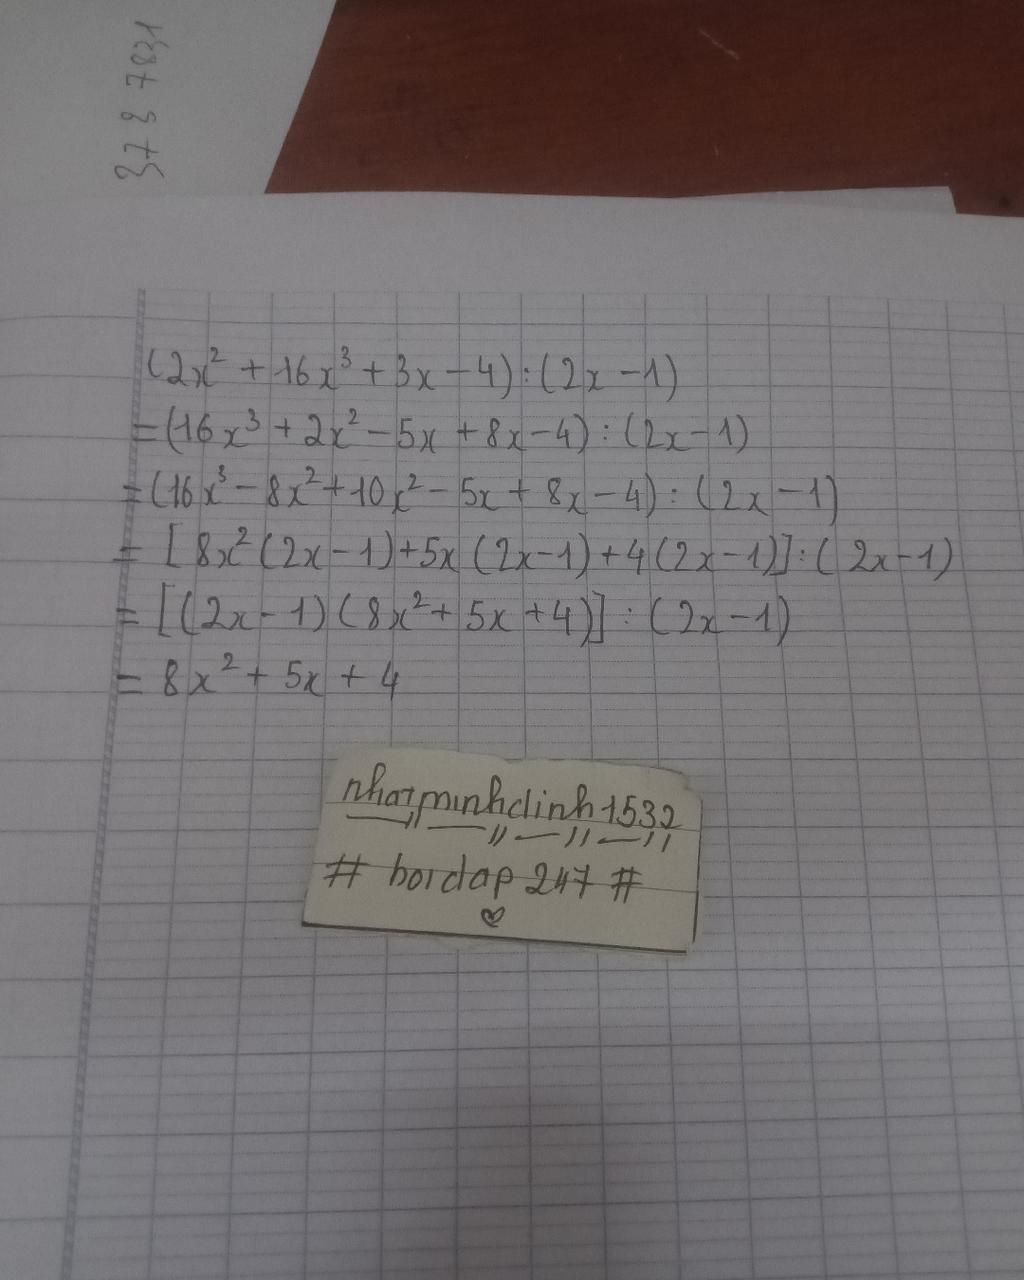 37 8 7831
(2x² + 16x³ + 3x - 4) : (2x - 1)
= (16x³ + 2x² - 5x + 8x - 4) : (2x - 1)
= (16x³ - 8x² + 10x² - 5x + 8x - 4) : (2x - 1)
= [8x² (2x - 1) + 5x (2x - 1) + 4 (2x - 1)] : (2x - 1)
= [(2x - 1) (8x² + 5x + 4)] : (2x - 1)
= 8x² + 5x + 4
nhatminhdinh1532
# hoidap 247 #